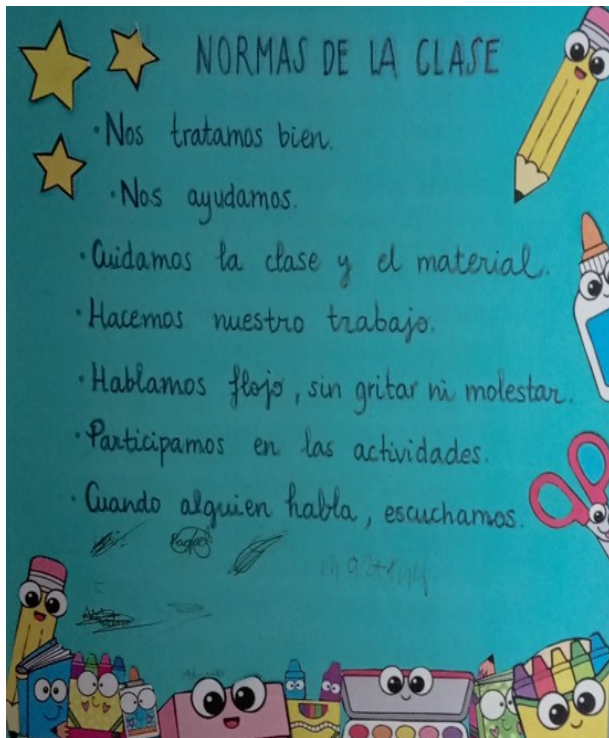 NORMAS DE LA CLASE
· Nos tratamos bien.
· Nos ayudamos.
· Cuidamos la clase y el material.
· Hacemos nuestro trabajo.
· Hablamos flojo, sin gritar ni molestar.
· Participamos en las actividades.
· Cuando alguien habla, escuchamos.